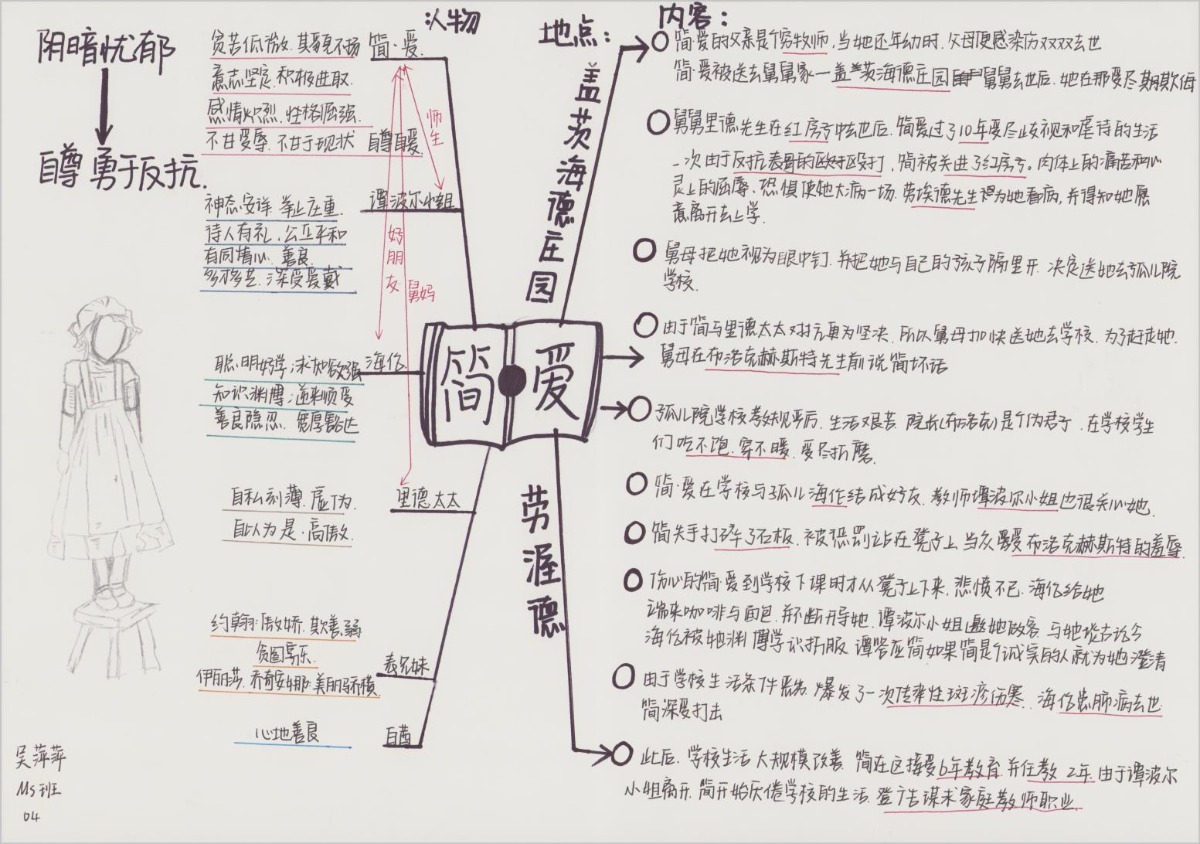 阴暗忧郁
自尊 勇于反抗.
人物
贫苦低微. 其貌不扬
意志坚定. 积极进取.
感情炽烈. 性格倔强.
不甘受辱. 不甘于现状 自尊自爱
简·爱.
师生
好朋友
舅妈
谭波尔小姐
神态安详. 举止庄重.
待人有礼. 公正平和
有同情心. 善良.
多才多艺. 深受爱戴
海伦
聪明好学; 求知欲强
知识渊博; 逆来顺受
善良隐忍. 宽厚豁达
里德太太
自私刻薄. 虚伪.
自认为是. 高傲.
表兄妹
约翰: 傲娇. 欺善弱
贪图享乐.
伊丽莎. 乔奇安娜: 美丽骄横
白茜
心地善良
吴萍萍
M5班
04
简爱
地点:
盖茨海德庄园
劳渥德
内容:
简·爱的父亲是个穷牧师, 当她还年幼时. 父母便感染伤双双去世
简·爱被送去舅舅家一盖茨海德庄园 舅舅去世后. 她在那受尽期期欺侮
舅舅里德先生在红房子中去世后. 简爱过了10年受尽歧视和虐待的生活
一次由于反抗表哥的殴打, 简被关进了红房子. 肉体上的痛苦和心
灵上的屈辱. 恐惧使她大病一场. 劳埃德先生为她看病, 并得知她愿
意离开去上学.
舅母把她视为眼中钉. 并把她与自己的孩子隔里开. 决定送她去孤儿院
学校.
由于简与里德太太对抗更为坚决. 所以舅母加快送她去学校. 为了赶走她.
舅母在布洛克赫斯特先生前说简坏话
孤儿院学校教规严厉. 生活艰苦 院长(布洛克)是个伪君子. 在学校学生
们吃不饱. 穿不暖. 受尽折磨.
简·爱在学校与孤儿海伦结成好友. 教师谭波尔小姐也很关心她.
简失手打碎了石板. 被惩罚站在凳子上. 当众受布洛克赫斯特的羞辱
伤心的简·爱到学校下课时才从凳子上下来. 悲愤不已. 海伦给她
端来咖啡与面包. 并不断开导她. 谭波尔小姐邀她做客. 与她谈古论今
海伦被她渊博学识折服. 谭答应简如果简是个诚实的人就为她澄清
由于学校生活条件恶劣. 爆发了一次传染性斑疹伤寒. 海伦患肺病去世
简深受打击
此后. 学校生活大规模改善 简在这接受6年教育 并任教 2年. 由于谭波尔
小姐离开. 简开始厌倦学校的生活. 登广告谋求家庭教师职业.